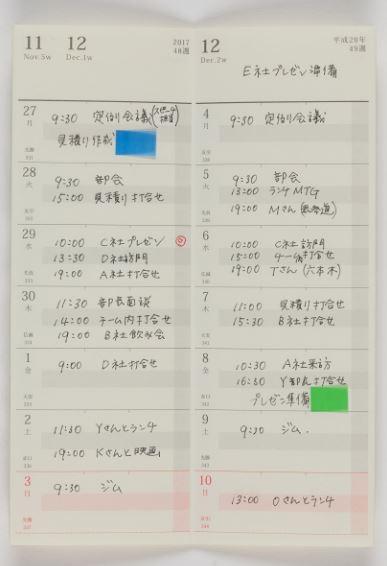 11 12
Nov.5w Dec.1w
2017
48週
27
月
9:30 定例会議(スピーチ
担当)
見積り作成
先勝
331
28
火
9:30 部会
15:00 見積り打合せ
29
水
10:00 C社プレゼン ◎
13:30 D社訪問
19:00 A社打合せ
30
木
11:30 部長面談
14:00 チーム内打合せ
19:00 B社飲み会
1
金
9:00 D社打合せ
2
土
11:30 Yさんとランチ
19:00 Kさんと映画
3
日
9:30 ジム
12
Dec.2w
平成29年
49週
E社プレゼン準備
4
月
9:30 定例会議
5
火
9:30 部会
13:00 ランチMTG
19:00 Mさん
6
水
10:00 C社訪問
15:00 チーム打合せ
19:00 Tさん(六本木)
7
木
11:00 見積り打合せ
15:30 B社打合せ
8
金
10:30 A社来訪
16:30 Y部長打合せ
プレゼン準備
9
土
9:30 ジム.
10
日
13:00 Oさんとランチ